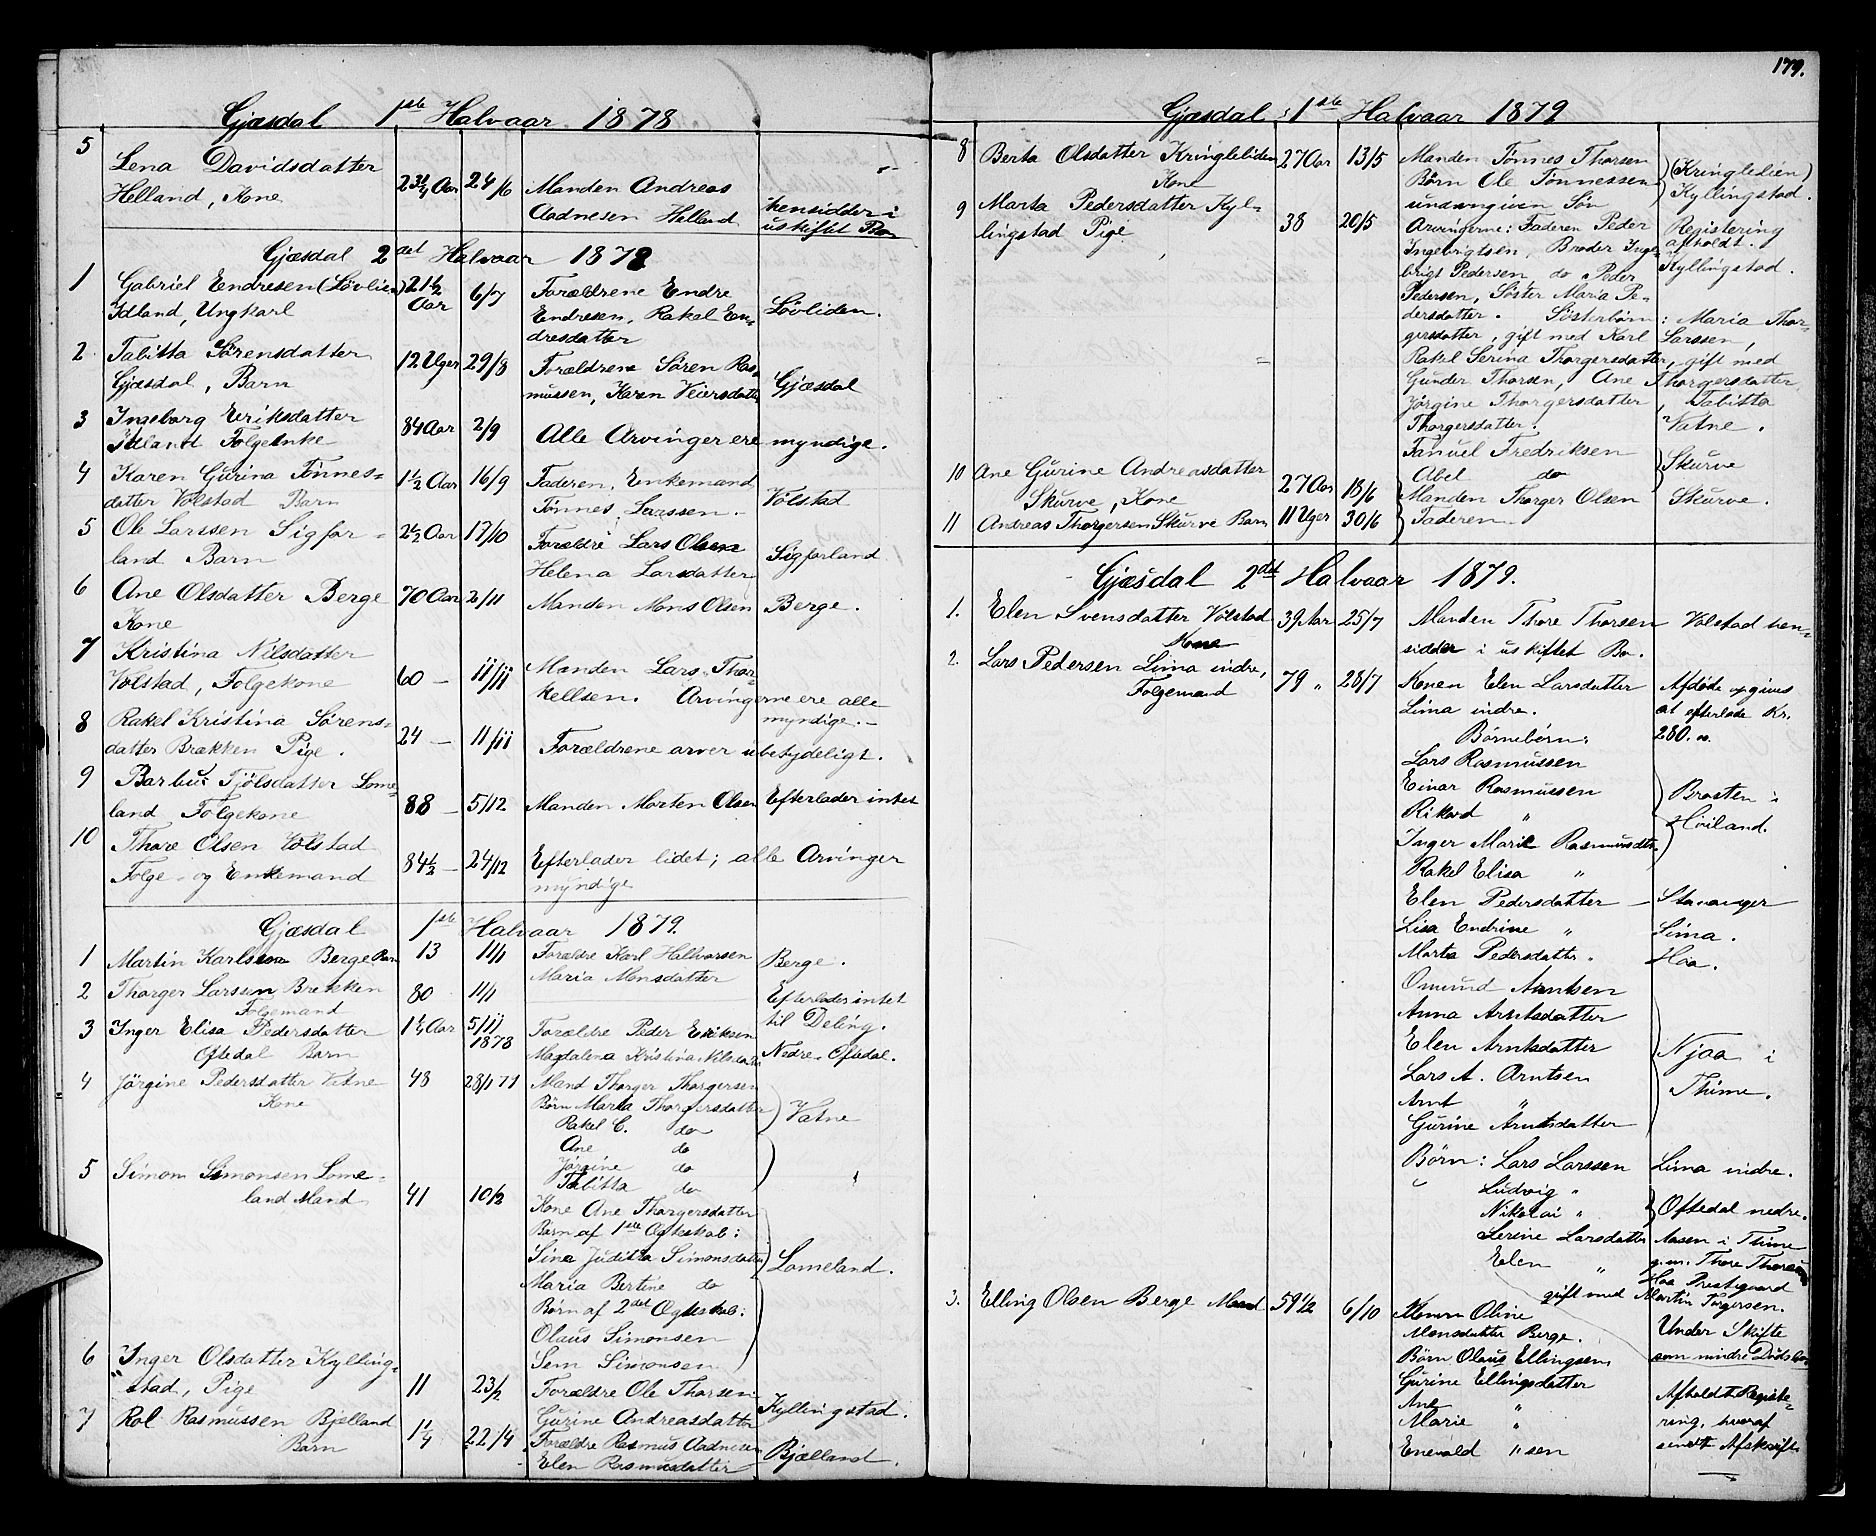 Gjæsdal 1ste Halvaar 1878
5 Lena Davidsdatter Helland, Kone 23¼ Aar 24/6 Manden Andreas Aadnesen Helland hensidder i uskiftet Bo
Gjæsdal 2det Halvaar 1878
1 Gabriel Eendresen (Løvlien) Idland, Ungkarl 21½ Aar 6/7 Forældrene Endre Eendresen, Rakel Een-dresdatter Løvliden.
2 Tabitta Sørensdatter Gjæsdal, Barn 12 Uger 29/8 Forældrene Søren Ras-mussen, Karen Veiersdatter Gjæsdal
3 Ingeborg Eeriksdatter Idland Følgeenke 84 Aar 2/9 Alle Arvinger ere myndige.
4 Karen Gurina Tønnes-datter Vølstad Barn 1½ Aar 16/9 Faderen, Enkemand Tønnes Larssen. Vølstad
5 Ole Larssen Sigfor-land Barn 2½ Aar 17/10 Forældre Lars Olsen Helena Larsdatter Sigforland
6 Ane Olsdatter Berge Kone 70 Aar 2/11 Manden Mons Olsen Berge.
7 Kristina Nilsdatter Vølstad, Følgekone 60 — 11/11 Manden Lars Thor-kellsen. Arvingerne ere alle myndige.—
8 Rakel Kristina Sørens-datter Brækken Pige. 24 — 11/11 Forældrene arver ubetydeligt.
9 Barbu Tjølsdatter Lome-land Følgekone 88 — 5/12 Manden Morten Olsen Efterlader intet
10 Thore Olsen Vølstad Følge- og Enkemand 84½ — 24/12 Eefterlader lidet; alle Arvinger myndige
Gjæsdal 1ste Halvaar 1879.
1 Martin Karlsen Berge Barn 13 11/1 Forældre Karl Halvorsen Maria Monsdatter Berge.
2 Thorger Larssen Brekken Følgemand 80 11/1 Efterlader intet til Deling.
3 Inger Elisa Pedersdatter Oftedal Barn 1¼ Aar 5/11 1878 Forældre Peder Eeriksen Magdalena Kristina Nilsdatter Nedre Oftedal.
4 Jørgine Pedersdatter Vatne Kone 48 28/1 79 Mand Thorger Thorgersen
Børn Marta Thorgersdatter
Rakel C. do
Ane do
Jørgine do
Tabitta do
Vatne
5 Simon Simonsen Lome-land Mand 41 10/2 Kone Ane Thorgersdatter
Børn af 1ste Ægteskab:
Sina Juditta Simonsdatter
Maria Bertine do
Børn af 2det Ægteskab:
Olaus Simonsen
Sem Simonsen
Lomeland.
6 Inger Olsdatter Kylling-stad, Pige 11 23/2 Forældre Ole Thorsen Gurine Andreasdatter Kyllingstad.
7 Rol Rasmussen Bjelland Barn 1¼ 22/4 Forældre Rasmus Aadnesen Elen Rasmusdatter Bjælland.
179.
Gjæsdal 1ste Halvaar 1879
8 Berta Olsdatter Kringleliden Kone 27 Aar 13/5 Manden Tønnes Thorsen
Børn Ole Tønnessen
unavngiven Søn
(Kringledien) Kyllingstad.
9 Marta Pedersdatter Kyl-lingstad Pige 38 20/5 Arvingerne: Faderen Peder
Ingebrigtsen, Broder Inge-
brigt Pedersen do Peder
Pedersen, Søster Maria Pe-
dersdatter. Søsterbørn: Maria Thor-
gersdatter, gift med Karl Larssen,
Rakel Serina Thorgersdatter, gift med
Gunder Thorsen, Ane Thorgersdatter,
Jørgine Thorgersdatter, Tabitta
Thorgersdatter. Vatne.
Fanuel Fredriksen
Abel do
Skurve
Registering afholdt.
Kyllingstad.
10 Ane Gurine Andreasdatter Skurve, Kone 27 Aar 18/6 Manden Thorger Olsen Skurve.
11 Andreas Thorgersen Skurve Barn 11 Uger 30/6 Faderen
Gjæsdal 2det Halvaar 1879.
1. Elen Svensdatter Vølstad Kone 39 Aar 25/7 Manden Thore Thorsen Vølstad hen-
sidder i uskiftet Bo.
2. Lars Pedersen Lima indre, Følgemand 79 " 28/7 Konen Elen Larsdatter
Lima indre.
Afdøde opgives at efterlade Kr. 280.
Børnebørn:
Lars Rasmussen
Einar Rasmussen
Rikard "
Inger Marie Rasmusdtr.
Rakel Elisa "
Brosten i Høiland.
Elen Pedersdatter — Stavanger
Lisa Endrine " Lima.
Marta Pedersdatter. Haa.
Omund Arntsen
Anna Arntsdatter
Elen Arntsdatter
Lars A. Arntsen
Arnt "
Gurine Arntsdatter
Njaa i Thime.
Børn: Lars Larssen Lima indre.
Ludvig "
Nikolai "
Oftedal nedre.
Serine Larsdatter Aasen i Thime
g. m. Thore Thorsen
Elen " Haa Prestegaard
gift med Martin Torgersen.
3. Elling Olsen Berge Mand 59½ 6/10 Konen Oline
Monsdatter Berge.
Børn Olaus Ellingsen
Gurine Ellingsdatter
Ane "
Marie "
Enevald "sen
Under Skifte
som mindre Dødsbo
Afholdt Registe-
ring, hvoraf
sendt Afskrift